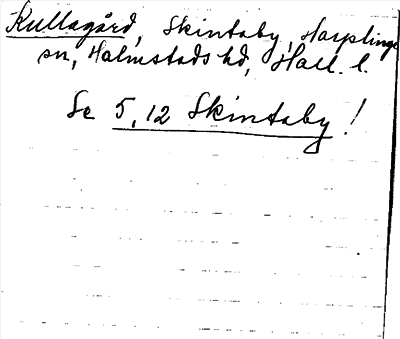 Kullagård, Skintaby, Harplinge
sn, Halmstads hd, Hall. l.
Se 5, 12 Skintaby!